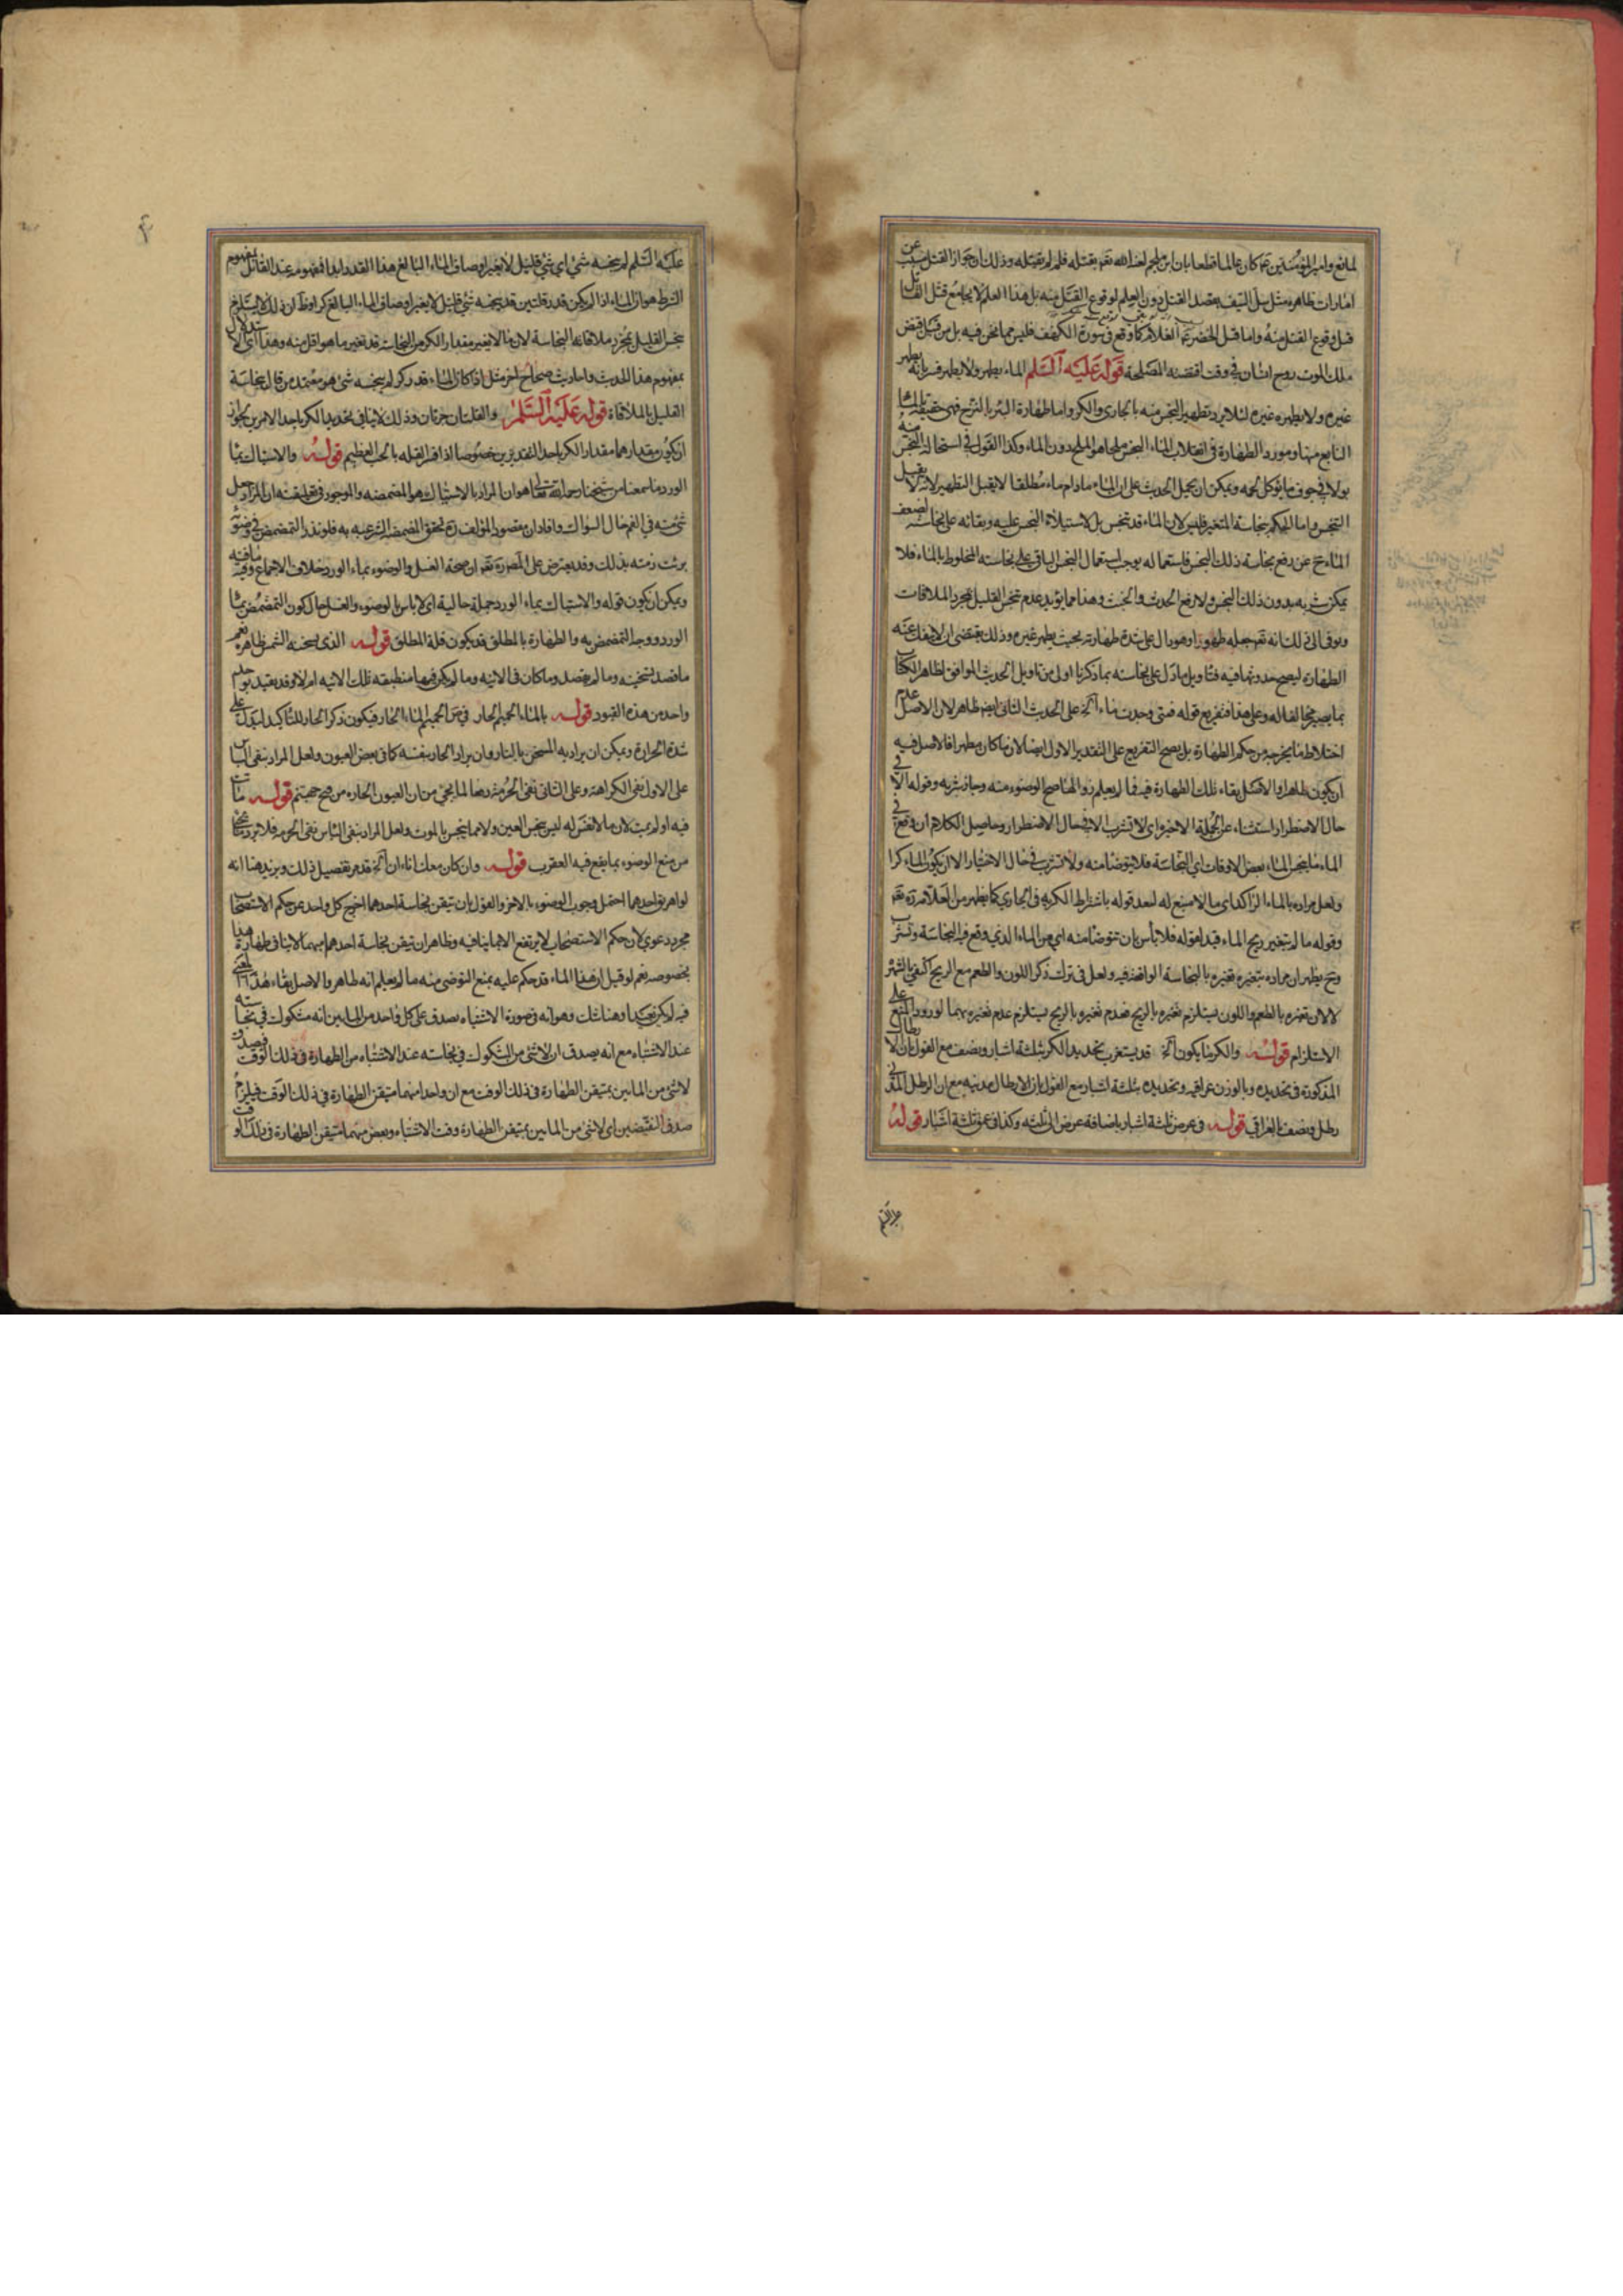 لمانع وامير المؤمنين ع كان عالما قطعا بان ابن ملجم لعنه الله تعم يقتله فلم لم يقتله وذلك ان جواز القتل مسبب عن
امارات ظاهره مثل سل السيف بقصد القتل دون العلم لوقوع القتل منه بل هذا العلم لا يجامع قتل القاتل
قبل وقوع القتل منه واما قتل الخضر ع الغلام كما وقع في سورة الكهف فليس مما نحن فيه بل من قبيل قبض
ملك الموت روح انسان في وقت اقتضته المصلحة قوله عليه السلم الماء يطهر ولا يطهر فسر انه يطهر
غيره ولا يطهره غيره لئلا يرد تطهير النجس منه بالجاري والكر واما طهارة البئر بالنزح فهي حقيقة بالماء
النابع منها ومورد الطهارة في انقلاب الماء النجس ملحا هو الملح دون الماء وكذا القول في استحالة النجس منه
بولا في جوف ما يؤكل لحمه ويمكن ان يحمل الحديث على ان الماء ما دام ماء مطلقا لا يقبل التطهير لانه لا يقبل
التنجس واما الحكم بنجاسة المتغير فليس لان الماء قد تنجس بل لاستيلاء النجس عليه وبقائه على نجاسته لضعف
الماء ح عن دفع نجاسة ذلك النجس فاستعماله يوجب استعمال النجس الباقي على نجاسته المخلوط بالماء فلا
يمكن شربه بدون ذلك النجس ولا رفع الحدث والخبث وهذا مما يؤيد عدم تنجس القليل بمجرد الملاقات
ويوفى الى ذلك انه تعم جعله طهورا وهو دال على شدة طهارته بحيث يطهر غيره وذلك يقتضى ان لا ينفك عنه
الطهارة ليصح حدوثها فيه فتاويل ما دل على نجاسته بما ذكرنا اولى من تاويل الحديث الموافق لظاهر الكتاب
بما يصير مخالفا له وعلى هذا فتفريع قوله فمتى وجدت ماء آلخ على الحديث الثاني ايضا ظاهر لان الاصل عدم
اختلاط ما يخرجه من حكم الطهارة بل يصح التفريع على التقدير الاول ايضا لان ما كان مطهرا فالاصل فيه
ان يكون طاهرا والاصل بقاء تلك الطهارة فيه فما لم يعلم زوالها صح الوضوء منه وجاز شربه وقوله الا في
حال الاضطرار استثناء عن الجملة الاخيرة اى لا تشرب الا في حال الاضطرار وحاصل الكلام ان وقع في
الماء ما ينجس الماء بعض الاوقات اي النجاسة فلا يتوضا منه ولا تشرب في حال الاختيار الا ان يكون الماء كرا
ولعل مراده بالماء الراكد اى ما لا منبع له لبعد قوله باشتراط الكرية في الجاري كما يظهر من العلامة ره
وقوله ما لم يتغير ريح الماء قيد لقوله فلا باس بان تتوضا منه اي من الماء الذي وقع فيه النجاسة وتشرب
وح يظهر ان مراده بتغيره تغيره بالنجاسة الواقعة فيه ولعل في ترك ذكر اللون والطعم مع الريح اكتفى بالاشهر
لا لان تغيره بالطعم واللون يستلزم تغيره بالريح فعدم تغيره بالريح يستلزم عدم تغيره بهما لورود المنع على
الاستلزام قوله والكر ما يكون آلخ قد يستغرب تحديد الكر بثلثة اشبار ونصف مع القول بان الارطال
المذكورة في تحديده وبالوزن عراقيه وتحديده بثلثة اشبار مع القول بان الارطال مدنيه مع ان الرطل المدني
رطل ونصف بالعراقي قوله في عرض ثلثة اشبار باضافة عرض الى ثلثه وكذا في عمق ثلثة اشبار قوله
عليه السلم
عليه السلم لم ينجسه شئ اي شئ قليل لا يغير اوصاف الماء البالغ هذا القدر وابدا فمفهومه عند القائل بمفهوم
الشرط هو ان الماء اذا لم يكن قدر قلتين قد ينجسه شئ قليل لا يغير اوصاف الماء البالغ كرا وظاهر ان ذلك لا يستلزم
تنجس القليل بمجرد ملاقاته النجاسة لان ما لا يغير مقدار الكر من النجاسات قد تغير ما هو اقل منه وهذا اي الاستدلال
بمفهوم هذا الحديث واحاديث صحاح اخر مثل اذا كان الماء قدر كر لم ينجسه شئ هو معتمد من قال بنجاسة
القليل بالملاقاة قوله عليه السلم والقلتان جرتان وذلك لا ينافي تحديد الكر باحد الامرين لجواز
ان يكون مقدارهما مقدار الكر باحد التقديرين خصوصا اذا فسر القله بالحب العظيم قوله والاستياك بماء
الورد ما سمعنا من شيخنا رحمه الله تعالى هو ان المراد بالاستياك هو المضمضه والموجود في تعليقته ان المراد جعل
شئ منه في الفم حال السواك وافاد ان مقصود المؤلف ره تحقق المضمضة الشرعيه به فلو نذر التمضمض في وضوء
برئت ذمته بذلك وقد يعترض على المصنف ره ان صحة الغسل والوضوء بماء الورد خلاف الاجماع وفيه ما فيه
ويمكن ان يكون قوله والاستياك بماء الورد جملة حالية اى لا باس بالوضوء والغسل حال كون التمضمض بماء
الورد ووجه التمضمض به والطهارة بالمطلق قد يكون قلة المطلق قوله الذى يسخنه الشمس ظاهره يعم
ما قصد تسخينه وما لم يقصد وما كان في الانيه وما لم يكن فيها منطبعه تلك الانيه ام لا وقد يقيد بواحد
واحد من هذه القيود قوله بالماء الحميم الحار في ص الحميم الماء الحار فيكون ذكر الحار للتاكيد ليدل على
شدة الحرارة ويمكن ان يراد به المسخن بالنار وان يراد الحار بنفسه كما في بعض العيون ولعل المراد بنفى الباس
على الاول نفى الكراهة وعلى الثاني نفى الحرمة دفعا لما يجئ من ان العيون الحاره من فيح جهنم قوله مات
فيه اولم يمت لان ما لا نفس له ليس نجس العين ولا مما ينجس بالموت ولعل المراد بنفى الباس نفى الحرمه فلا يرد ما يجئ
من منع الوضوء بما يقع فيه العقرب قوله وان كان معك اناءان آلخ قد مر تفصيل ذلك ونزيد هنا انه
لو اهريق احدهما احتمل وجوب الوضوء بالاخر والقول بان تيقن نجاسة احدهما اخرج كل واحد عن حكم الاستصحاب
مجرد دعوى لان حكم الاستصحاب لا يرتفع الا بما ينافيه وظاهر ان تيقن نجاسة احدهما مبهما لا ينافي طهارة هذا
بخصوصه نعم لو قيل ان هذا الماء قد حكم عليه بمنع التوضى منه ما لم يعلم انه طاهر والاصل بقاء هذا المعنى
فيه لم يكن بعيدا وهنا شك وهو انه في صورة الاشتباه يصدق على كل واحد من المابين انه مشكوك في نجاسته
عند الاشتباه مع انه يصدق ان لا شئ من المشكوك في نجاسته عند الاشتباه من الطهارة في ذلك الوقت فيصدق
لا شئ من المابين بمتيقن الطهارة في ذلك الوقت مع ان واحدا منهما متيقن الطهارة في ذلك الوقت فيلزم
صدق النقيضين اى لا شئ من المابين بمتيقن الطهارة وقت الاشتباه وبعض منهما متيقن الطهارة في ذلك الوقت